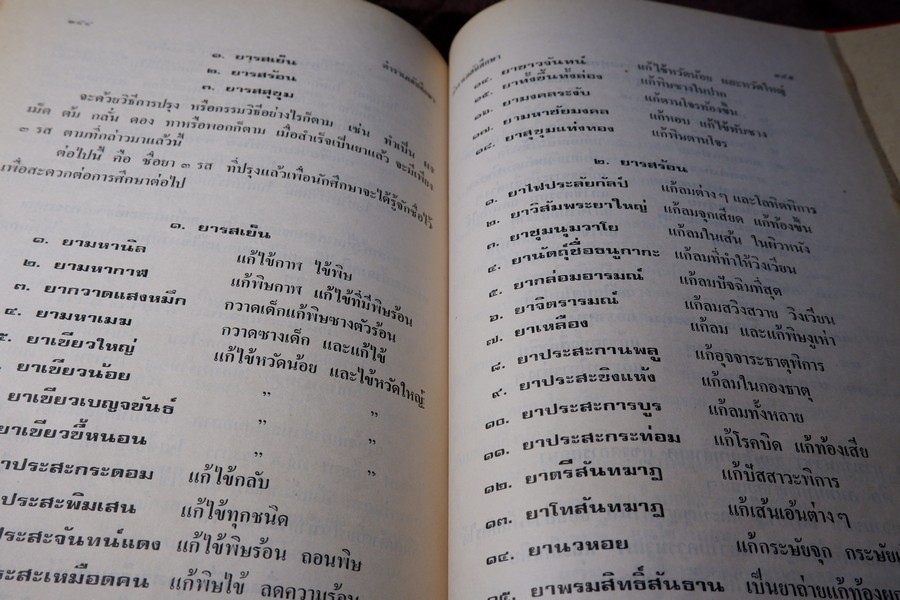 ๑๔๔
ตำราเภสัชศึกษา
๑. ยารสเย็น
๒. ยารสร้อน
๓. ยารสสุขุม
จะด้วยวิธีการปรุง หรือกรรมวิธีอย่างไรก็ตาม เช่น ทำเป็น ผง
เม็ด ต้ม กลั่น ดอง ทาหรือเอกก็ตาม เมื่อสำเร็จเป็นยาแล้ว จะมีเพียง
๓ รส ตามที่กล่าวมาแล้วนี้
ต่อไปนี้ คือ ชื่อยา ๓ รส ที่ปรุงแล้วเพื่อนักศึกษาจะได้รู้จักชื่อไว้
เพื่อสะดวกต่อการศึกษาต่อไป
๑. ยารสเย็น
๑. ยามหานิล แก้ไข้กาฬ ไข้พิษ
๒. ยามหากาฬ แก้พิษกาฬ แก้ไข้ที่มีพิษร้อน
๓. ยากวาดแสงหมึก กวาดเด็กแก้พิษซางตัวร้อน
๔. ยามหาเมฆ กวาดซางเด็ก และแก้ไข้
๕. ยาเขียวใหญ่ แก้ไข้หวัดน้อย และไข้หวัดใหญ่
ยาเขียวน้อย ” ”
ยาเขียวเบญจขันธ์ ” ”
ยาเขียวขี้หนอน ” ”
ยาประสะกระดอม แก้ไข้กลับ
ประสะพิมเสน แก้ไข้ทุกชนิด
ประสะจันทน์แดง แก้ไข้พิษร้อน ถอนพิษ
ระสะเหมือดคน แก้พิษไข้ ลดความร้อน
๑๔๕
๑๔. ยาขาวจันทน์ แก้ไข้หวัดน้อย และหวัดใหญ่
๑๕. ยาทั้งยื่นทั้งผ่อง แก้พิษในปาก
๑๖. ยามงคลระงับ แก้ตานโซรท้องขึ้น
๑๗. ยามหาชัยมงคล แก้หอบ แก้ไข้ทับซาง
๑๘. ยาสุขุมแท่งทอง แก้พิษตานโซร
๒. ยารสร้อน
๑. ยาไฟประลัยกัลป์ แก้ลมต่างๆ และโลหิตพิการ
๒. ยาวิสัมพระยาใหญ่ แก้ลมจุกเสียด แก้ท้องขึ้น
๓. ยาชุมนุมวาโย แก้ลมในเส้น ในผิวหนัง
๔. ยานัตถุ์ชื่ออนูกากะ แก้ลมที่ทำให้วิงเวียน
๕. ยากล่อมอารมณ์ แก้ลมปัจฉิมที่สุด
๖. ยาจิตรารมณ์ แก้ลมสวิงสวาย วิงเวียน
๗. ยาเหลือง แก้ลม และแก้พิษงูเห่า
๘. ยาประสะกานพลู แก้อุจจาระธาตุพิการ
๙. ยาประสะขิงแห้ง แก้ลมในกองธาตุ
๑๐. ยาประสะการบูร แก้ลมทั้งหลาย
๑๑. ยาประสะกระท่อม แก้โรคบิด แก้ท้องเสีย
๑๒. ยาตรีสันทฆาฏ แก้ปัสสาวะพิการ
๑๓. ยาโทสันทฆาฏ แก้เส้นเอ้นต่างๆ
๑๔. ยานวหอย แก้กระษัยจุก กระษัย
๑๕. ยาพรมสิทธิ์สันธาน เป็นยาถ่ายแก้ท้อง